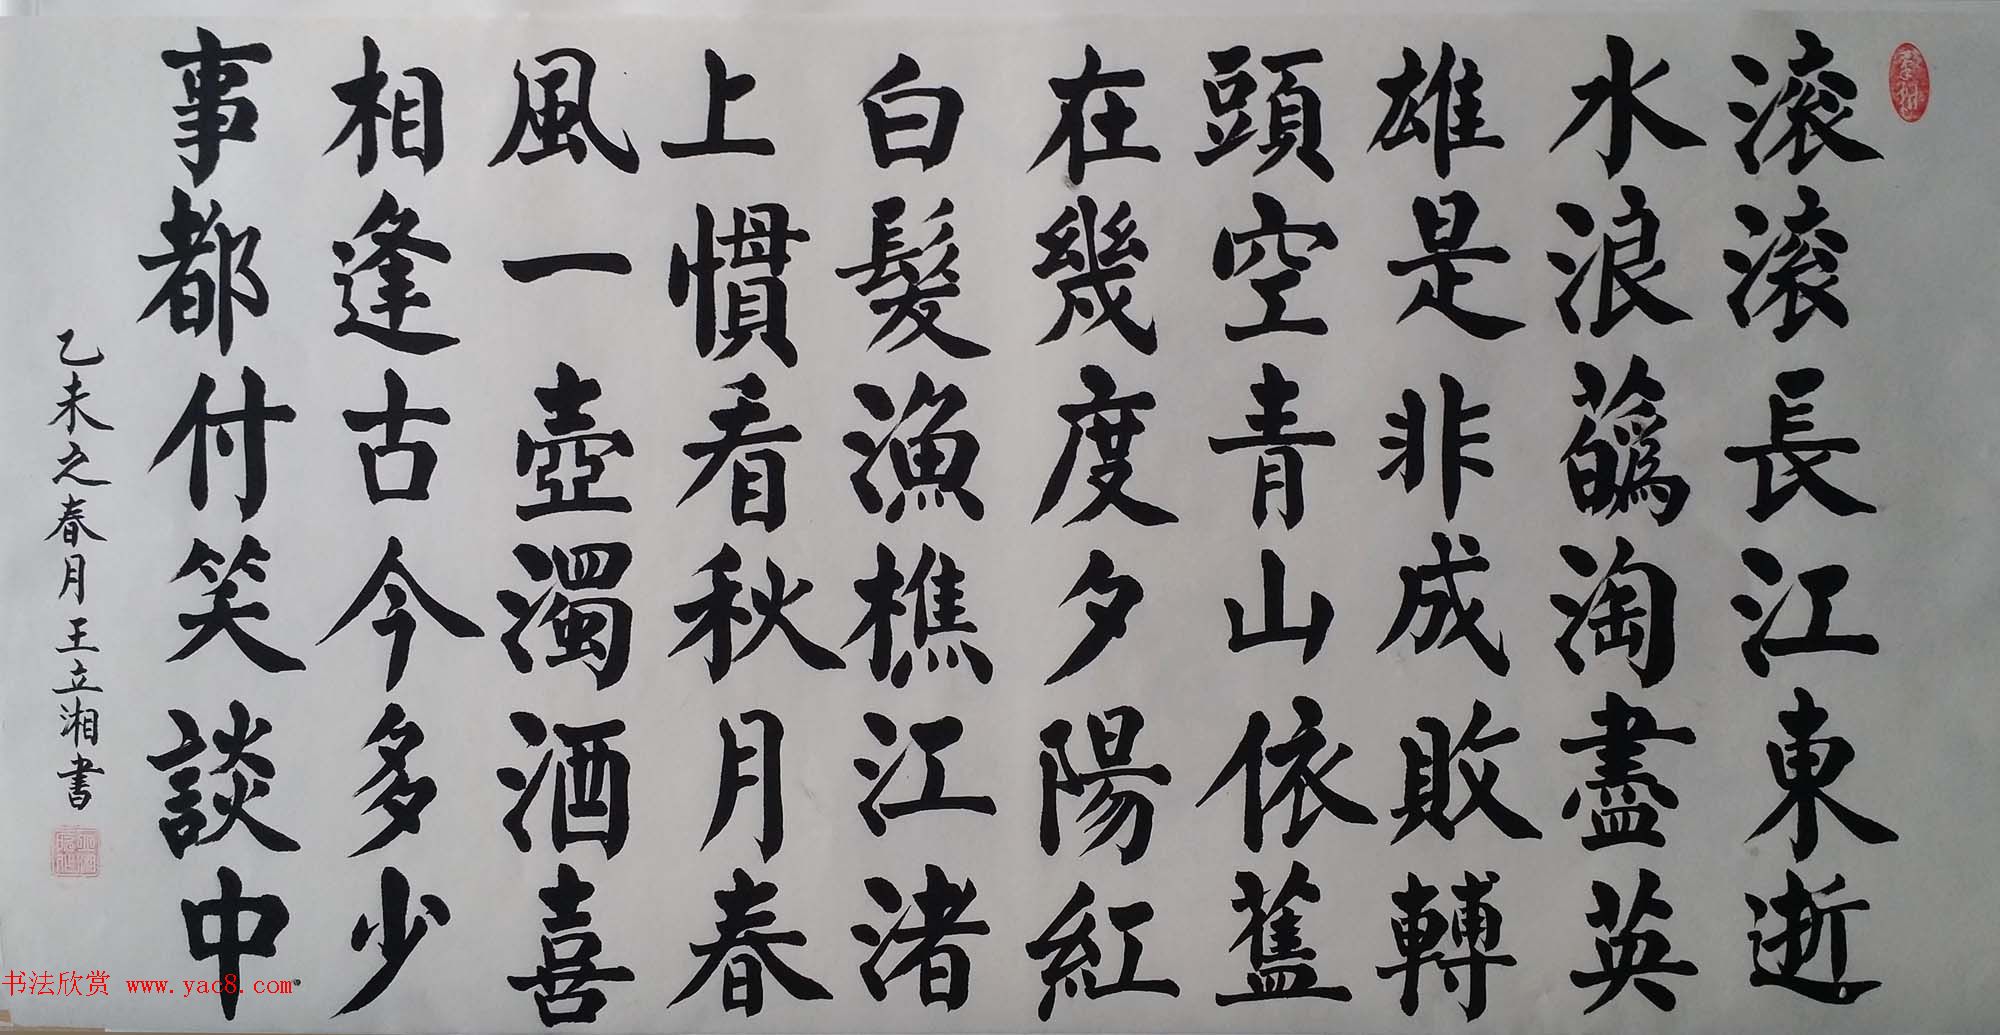 滚滚長江東逝
水浪蘤淘盡英
雄是非成敗轉
頭空青山依舊
在幾度夕陽紅
白髮漁樵江渚
上慣看秋月春
風一壺濁酒喜
相逢古今多少
事都付笑談中
乙未之春月王立湘書
书法欣赏 www.yac8.com